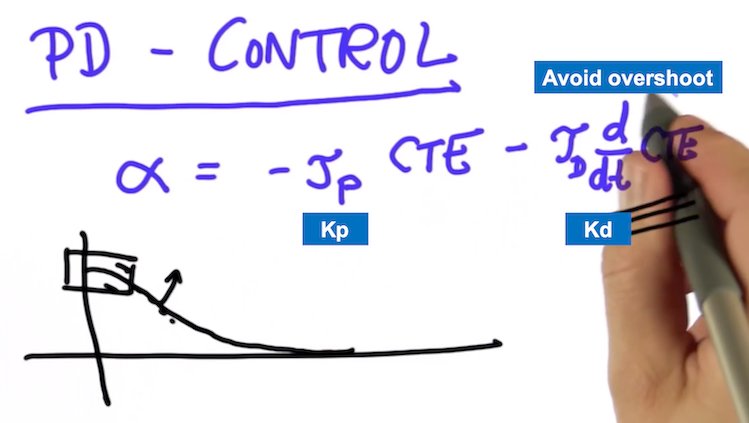 PD - CONTROL
Avoid overshoot
α = - τp CTE - τD d/dt CTE
Kp Kd